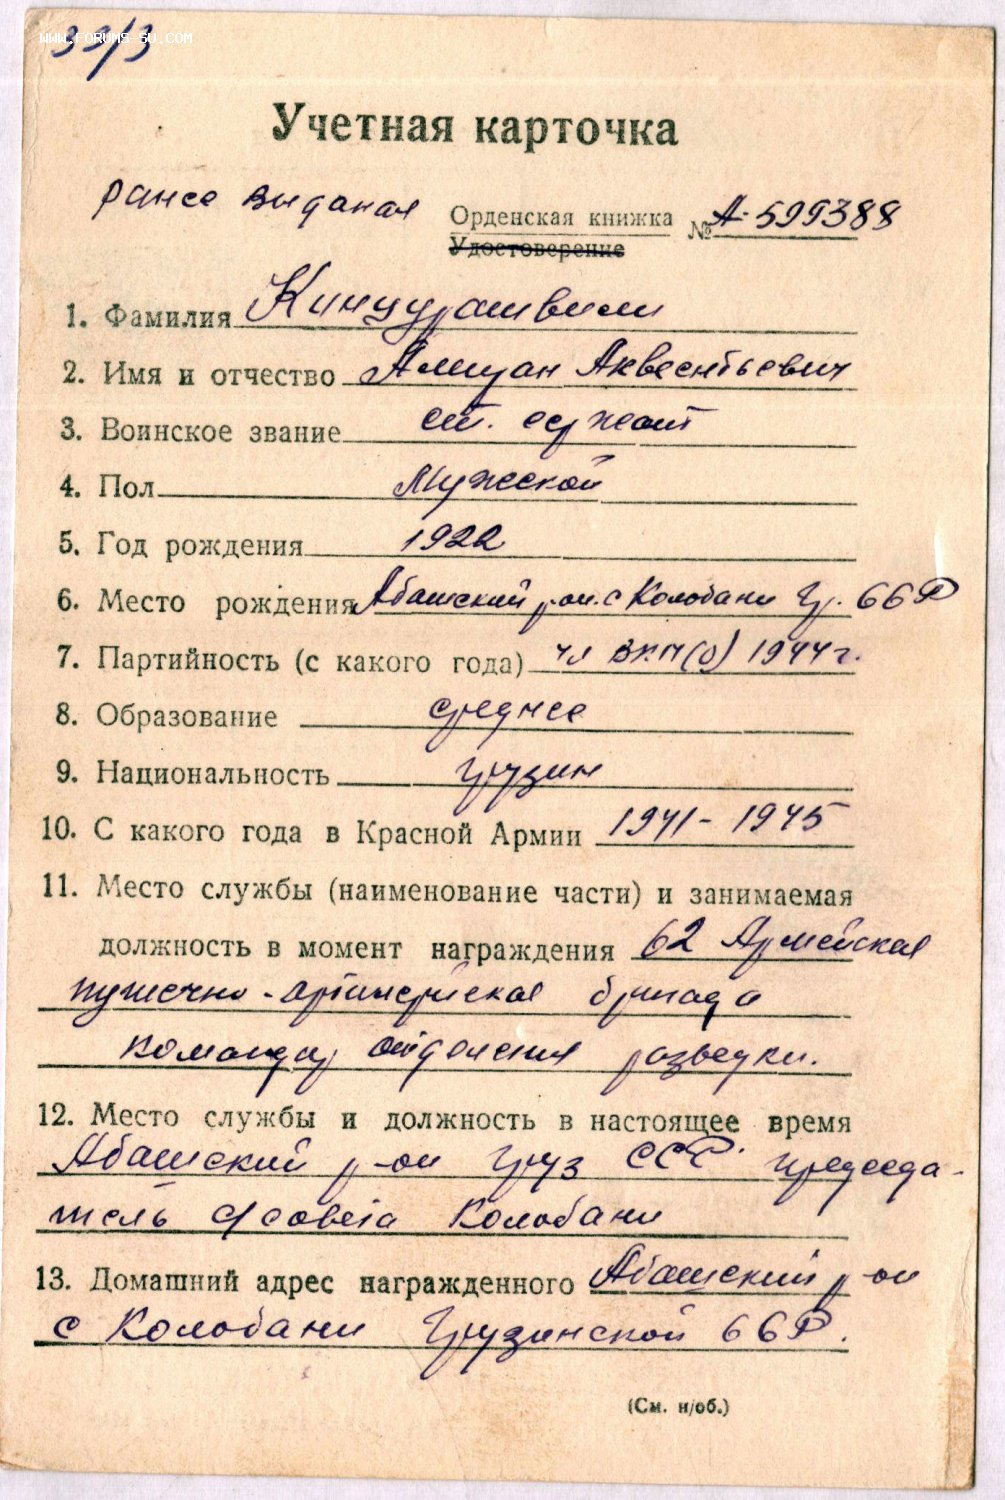 www.forums-su.com
33/3
Учетная карточка
ранее выданая
Орденская книжка № А-599388
Удостоверение
1. Фамилия Кинцурашвили
2. Имя и отчество Аквсентьевич
3. Воинское звание ст. сержант
4. Пол Мужской
5. Год рождения 1922
6. Место рождения Абашский рай. с Колобани Гр. ССР
7. Партийность (с какого года) чл ВКП(б) 1944 г.
8. Образование среднее
9. Национальность грузин
10. С какого года в Красной Армии 1941 - 1945
11. Место службы (наименование части) и занимаемая
должность в момент награждения 62 Армейская
пушечно-артилерийская бригада
командир отделения разведки.
12. Место службы и должность в настоящее время
Абашский р-он Груз ССР председа-
тель с/совета Колобани
13. Домашний адрес награжденного Абашский р-он
с Колобани Грузинской ССР.
(См. н/об.)